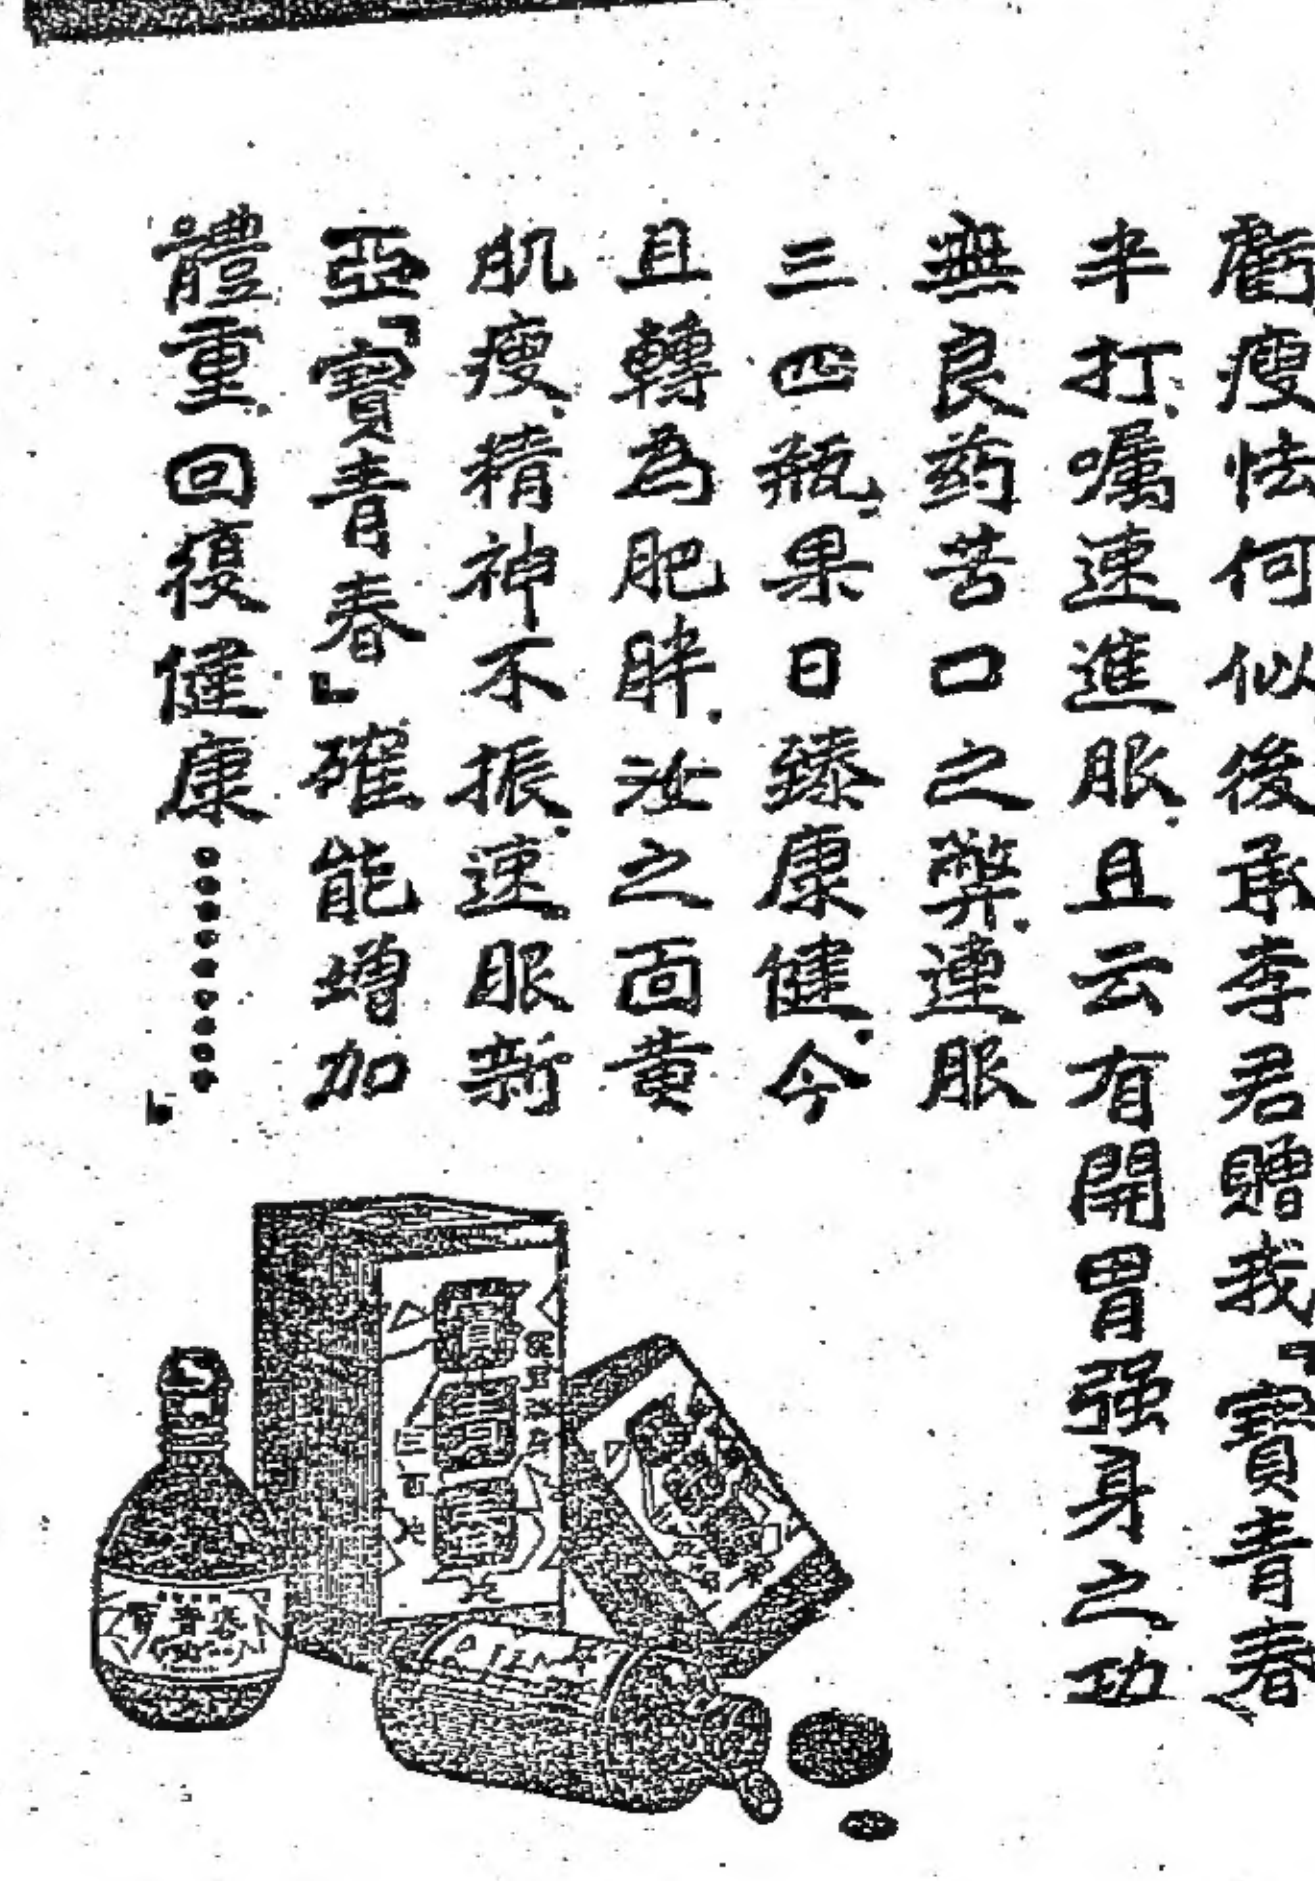 虧瘦怯何似後承李君贈我「寶青春」
半打.囑速進服.且云有開胃强身之功
無良药苦口之弊.連服
三四瓶.果日臻康健.今
且轉為肥胖.汝之面黄
肌瘦.精神不振.速服新
亞「寶青春」確能增加
體重回復健康………」
寶青春
寶青春